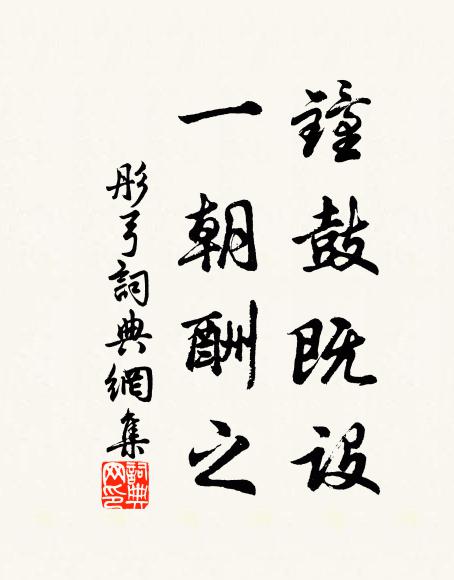 鐘鼓既設
一朝酬之
彤弓詞典網集
詞典网印